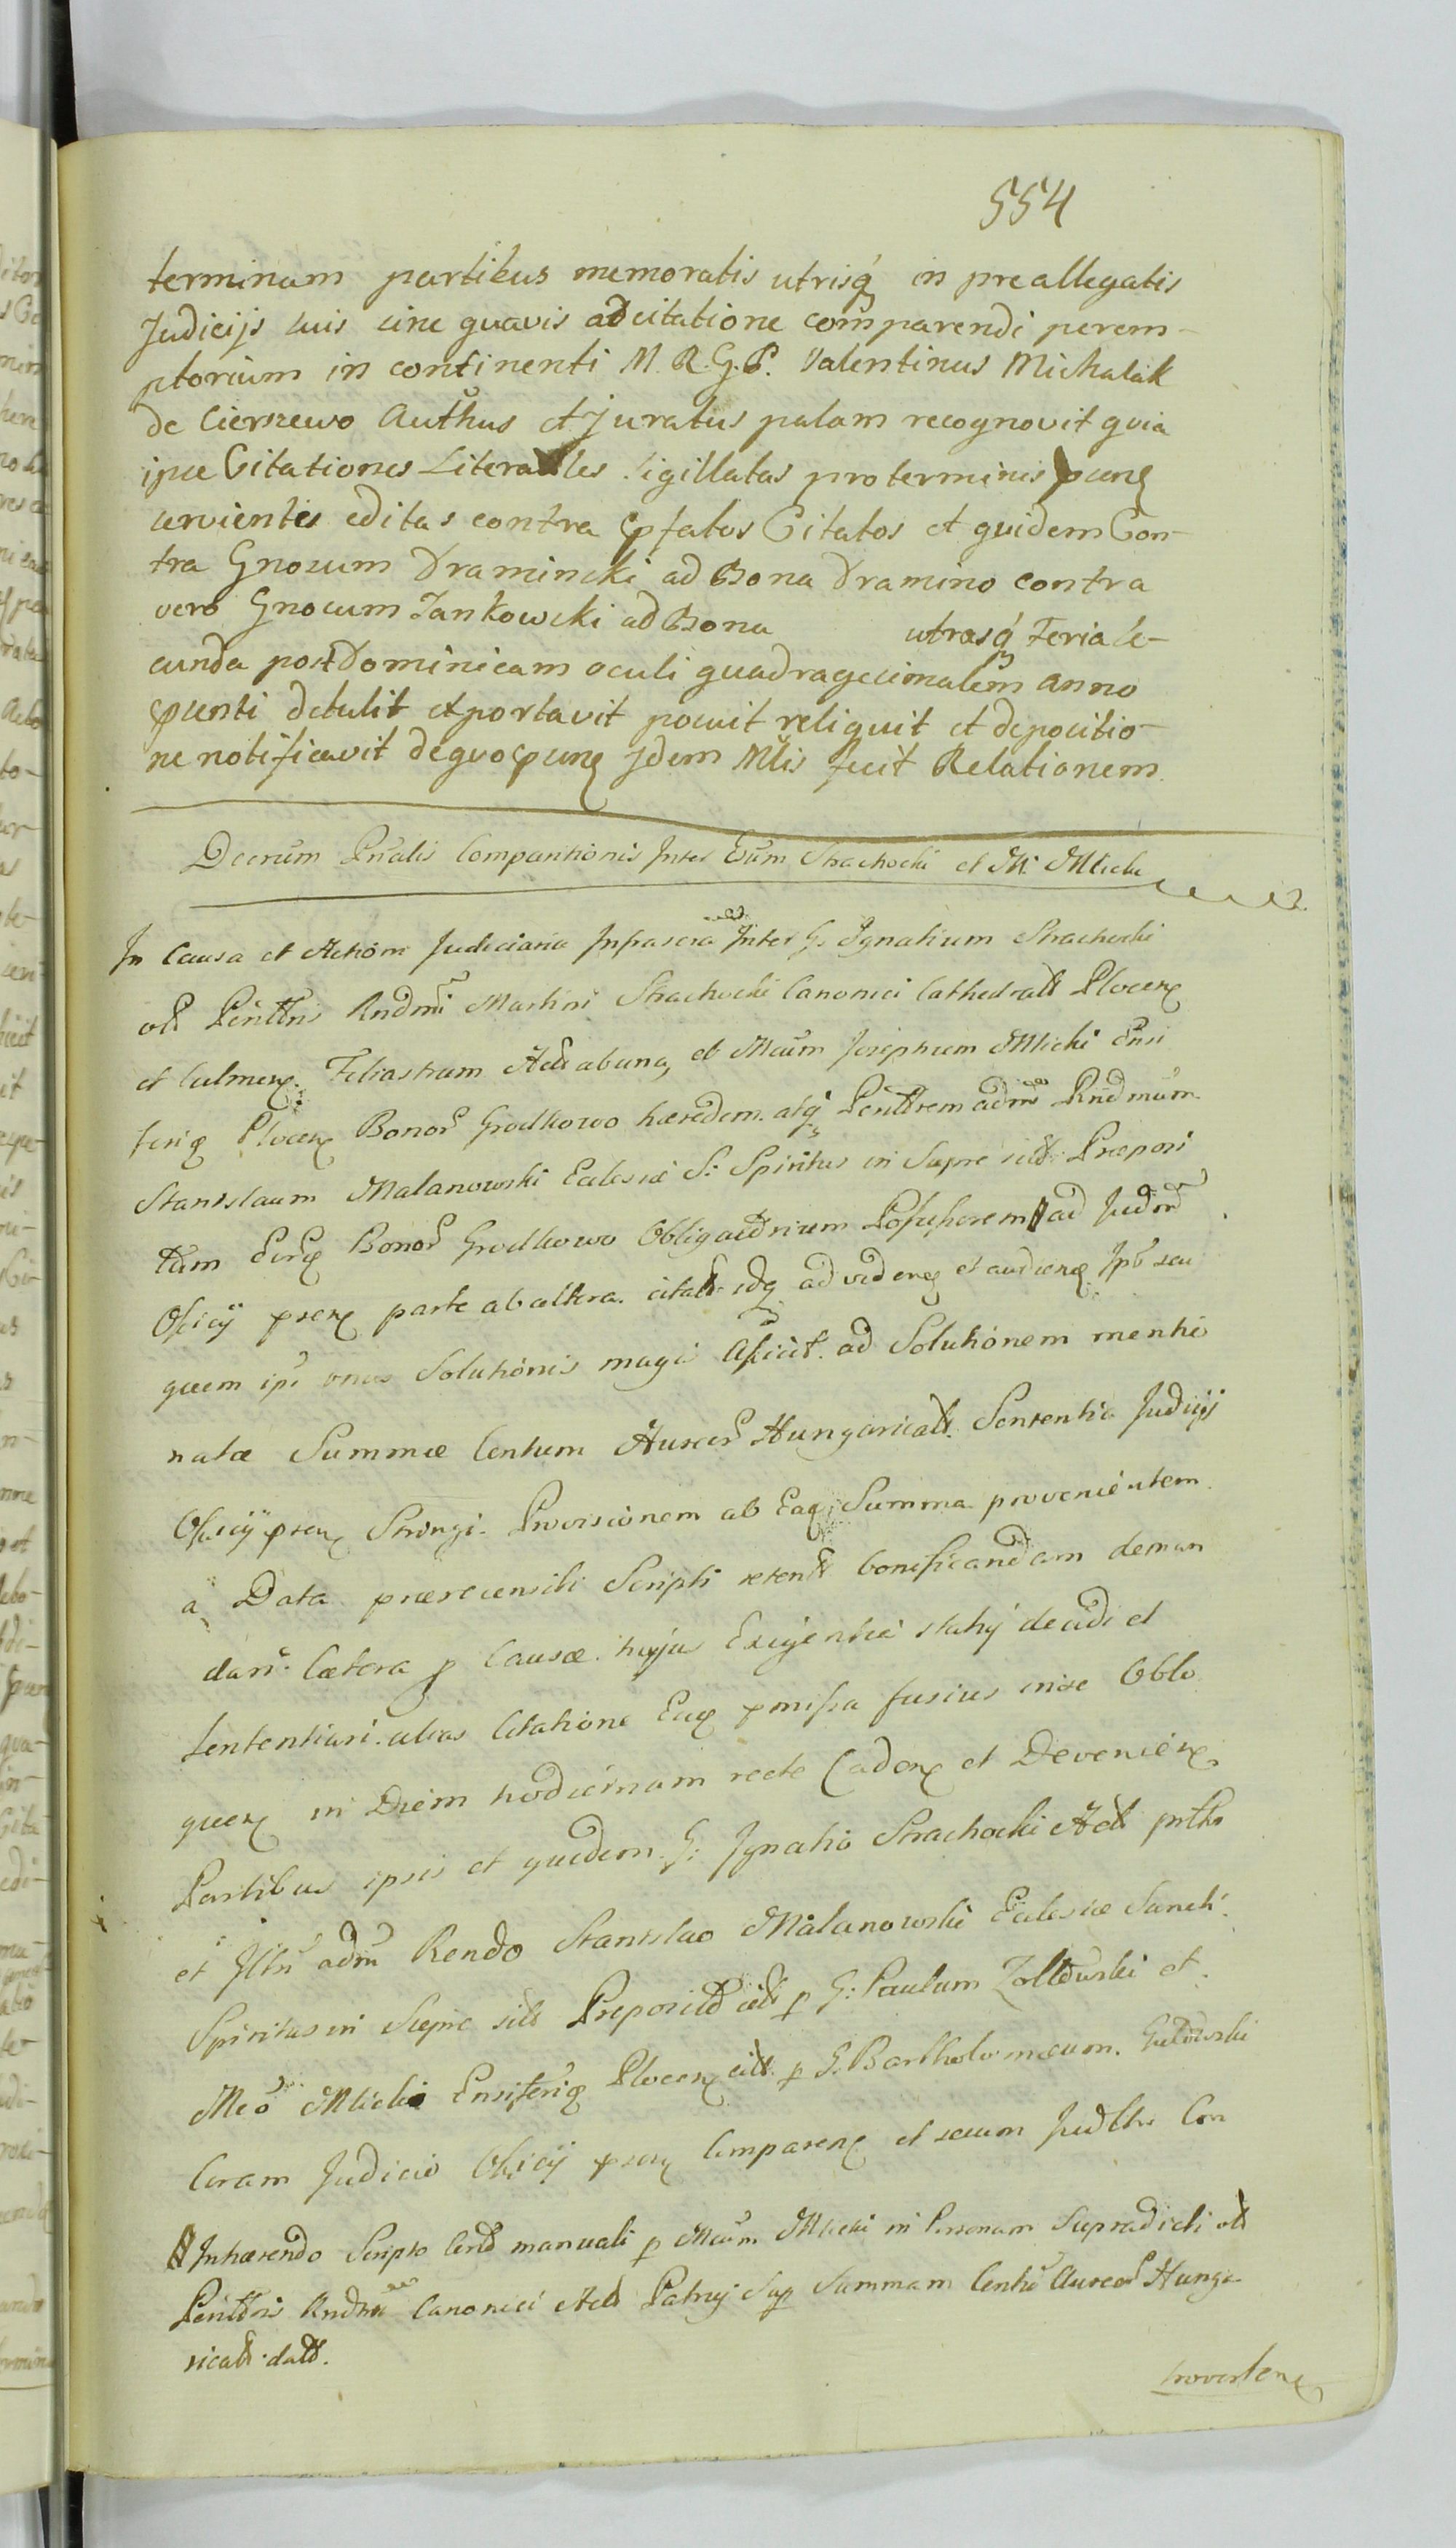 554
terminum partibus memoratis utrisq in preallegatis
Judicijs suis sine quavis adcitatione comparendi perem-
ptorium in continenti M. R. G. P. Valentinus Michalak
de Cierszewo Authus et juratus palam recognovit quia
ipse Citationes Literales sigillatas pro terminis pung
servientes editas contra pfatos Citatos et quidem Con-
tra Gnosum Draminski ad Bona Dramino contra
vero Gnosum Jankowski ad Bona utrasq Feria Se-
cunda post Dominicam oculi quadragesimalem anno
psenti detulit et portavit posuit reliquit et depositio-
ne notificavit de quo pung jdem Mlis fecit Relationem.
Decrum Pnalis Comparitionis Inter Gsum Strachocki et M. Mlicki
In Causa et Actione Judiciaria Infrascra Inter G. Ignatium Strachocki
olt Penttris Rndmi Martini Strachocki Canonici Cathedralt Plocen
et Culmen. Filiastrum Act ab una, et Mcum Josephum Mlicki Ensi
ferig Plocen Bonor Grodkowo hæredem. atq Penttrem admo Rndmum
Stanislaum Malanowski Eclesiæ S. Spiritus in Sepne sitt Præposi
tum Eorg Bonor Grodkowo Obligatorium Possessorem ad Judm
Officij psen parte ab altera. citatt idq ad viden et audien Ipb seu
quem ipi onus Solutionis magis afficit. ad Solutionem mentio
natæ Summæ Centum Aureor Hungaricalt. Sententia Judicij
Officij psen Stringi. Provisionem ab Eaq Summa provenientem
a Data prærecensiti Scripti retent bonificandam deman
dari. Cætera p Causæ hujus Exigentia statuj decidi et
sententiari. alias Citatione Eaq pmissa fusius inde Oblo
quen in Diem hodiernam recte Caden et Devenien
Partibus ipsis et quidem. G: Ignatio Strachocki Act pnttr
et Illri adm Rendo Stanislao Malanowski Eclesiæ Sancti
Spiritus in Sepne sitt Preposito citt p G: Paulum Zoltowski et
Mco Mlicki Ensiferig Plocen citt. p G. Bartholomæum.
Coram Judicio Officij psen Comparen et secum Judltr Con
Inhærendo Scripto Cert manuali p Mcum Mlicki in Personam Supradicti olt
Penttris Rndmi Canonici Act Patruj Sup Summam Centu Aureor Hunga
ricalt. datt.
troverten